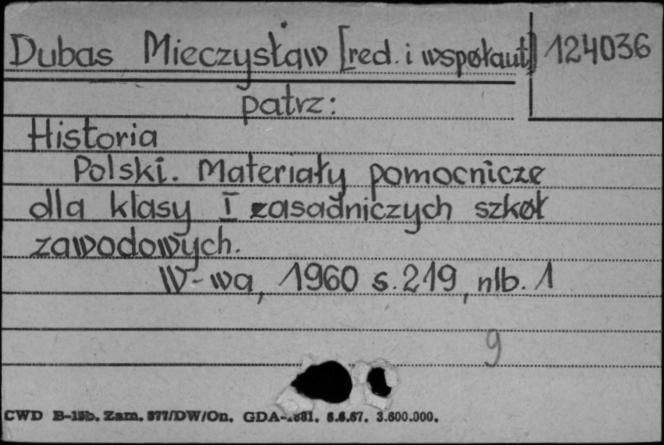 Dubas Mieczysław [red. i współaut] 124036
patrz:
Historia
Polski. Materiały pomocnicze
dla klasy I zasadniczych szkół
zawodowych.
W-wa, 1960 s. 219, nlb. 1
9
CWD B-15b. Zam. 977/DW/On. GDA- 6.6.67. 3.600.000.